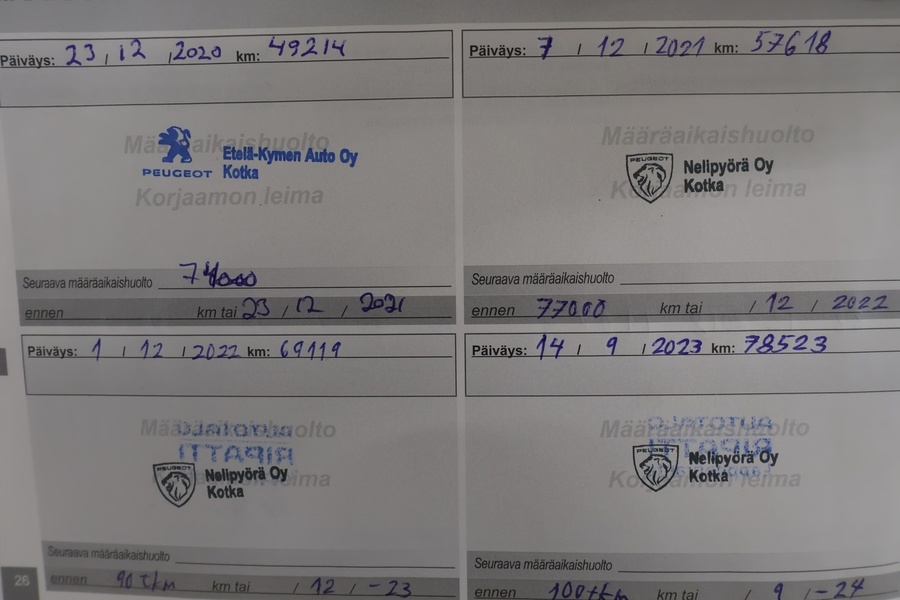 Päiväys: 23 / 12 / 2020 km: 49214
Määräaikaishuolto
PEUGEOT
Etelä-Kymen Auto Oy
Kotka
Korjaamon leima
Seuraava määräaikaishuolto 74000
ennen km tai 23 / 12 / 2021
Päiväys: 7 / 12 / 2021 km: 57618
Määräaikaishuolto
PEUGEOT
Nelipyörä Oy
Kotka
Korjaamon leima
Seuraava määräaikaishuolto
ennen 77000 km tai / 12 / 2022
Päiväys: 1 / 12 / 2022 km: 69119
Määräaikaishuolto
PEUGEOT
Nelipyörä Oy
Kotka
Korjaamon leima
Seuraava määräaikaishuolto
ennen 90 tkm km tai / 12 / -23
Päiväys: 14 / 9 / 2023 km: 78523
Määräaikaishuolto
PEUGEOT
Nelipyörä Oy
Kotka
Korjaamon leima
Seuraava määräaikaishuolto
ennen 100tkm km tai / 9 / -24
26